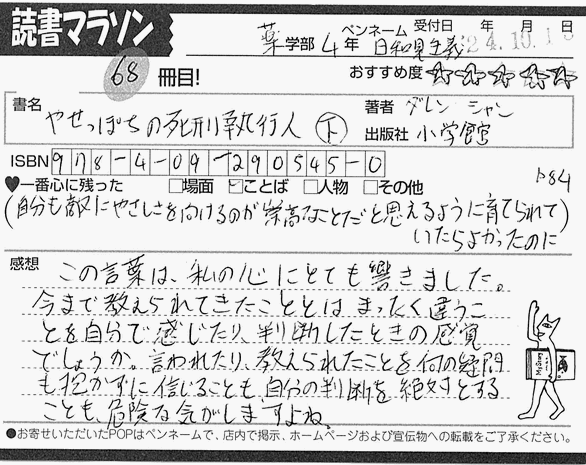 読書マラソン
68 冊目!
薬学部 4年 ペンネーム 日和見主義 受付日 年 月 日
24.10.1
おすすめ度 ☆☆☆☆☆
書名 やせっぽちの死刑執行人 下
著者 ダレン シャン
出版社 小学館
ISBN 978-4-09-290545-0
♥一番心に残った □場面 ☑ことば □人物 □その他 P84
(自分も敵にやさしさを向けるのが崇高なことだと思えるように育てられて
いたらよかったのに
感想 この言葉は、私の心にとても響きました。
今まで教えられてきたこととはまったく違うこ
とを自分で感じたり、判断したときの感覚
でしょうか。言われたり、教えられたことを何の疑問
も抱かずに信じることも、自分の判断を絶対とする
ことも、危険な気がしますよね。
●お寄せいただいたPOPはペンネームで、店内で掲示、ホームページおよび宣伝物への転載をご了承ください。